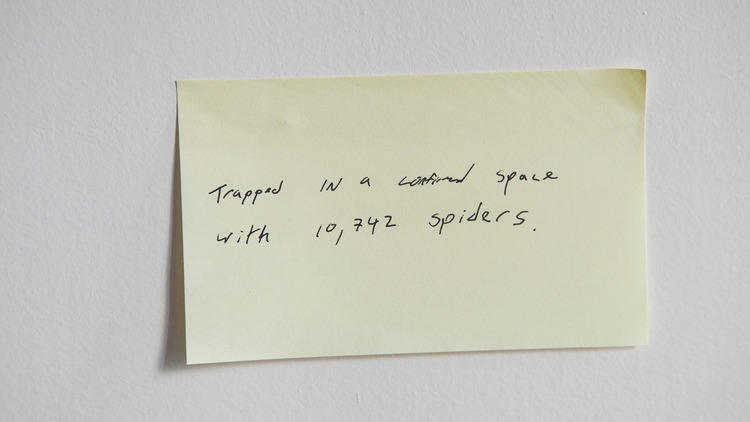 Trapped IN a confined space
with 10,742 spiders.